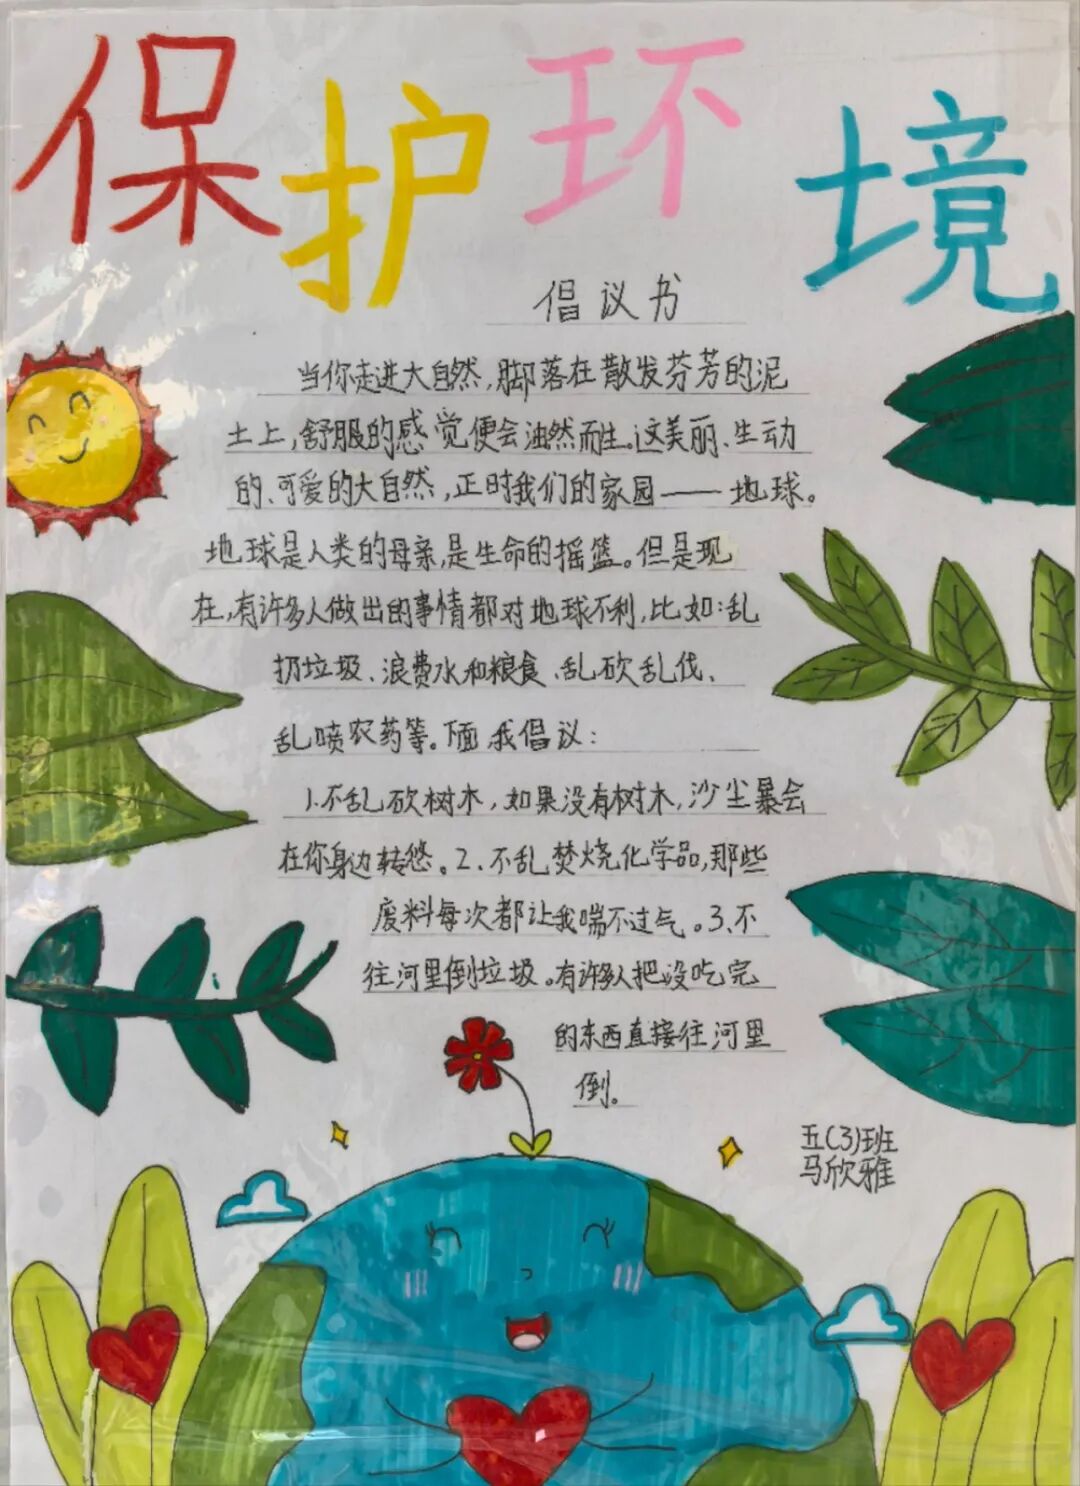 保护环境
倡议书
当你走进大自然,脚落在散发芬芳的泥
土上,舒服的感觉便会油然而生。这美丽、生动
的、可爱的大自然,正时我们的家园——地球。
地球是人类的母亲,是生命的摇篮。但是现
在,有许多人做出的事情都对地球不利,比如:乱
扔垃圾、浪费水和粮食、乱砍乱伐、
乱喷农药等。下面,我倡议:
1.不乱砍树木,如果没有树木,沙尘暴会
在你身边转悠。2、不乱焚烧化学品,那些
废料每次都让我喘不过气。3、不
往河里倒垃圾。有许多人把没吃完
的东西直接往河里
倒。
五(3)班
马欣雅